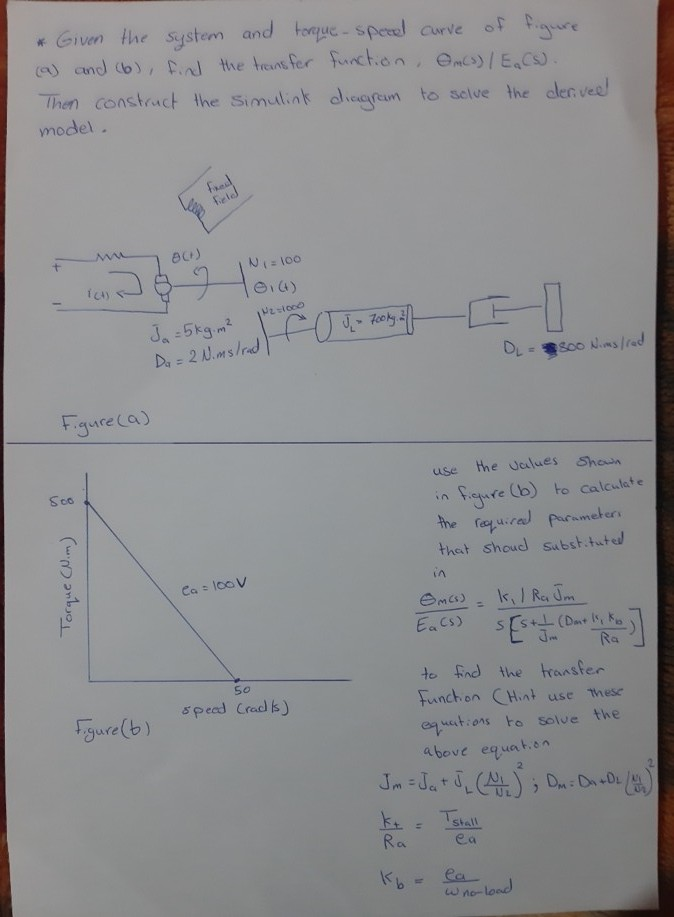 * Given the system and torque-speed curve of figure
(a) and (b), find the transfer function, Θm(s)/Ea(s).
Then construct the simulink diagram to solve the derived
model.
Fixed
field
+
-
i(t)
θ(t)
N1=100
θ1(t)
N2=1000
Ja = 5kg.m²
Da = 2 N.ms/rad
JL = 700kg.m²
DL = 800 N.ms/rad
Figure(a)
500
Torque (N.m)
ea = 100V
50
speed (rad/s)
Figure(b)
use the values shown
in figure(b) to calculate
the required parameters
that shoud substituted
in
Θm(s)/Ea(s) = Kt / Ra Jm / s[s+1/Jm (Dm+ Kt Kb/Ra)]
to find the transfer
function (Hint use these
equations to solve the
above equation
Jm = Ja + JL (N1/N2)² ; Dm = Da+DL (N1/N2)²
Kt/Ra = Tstall/ea
Kb = ea/ωno-load